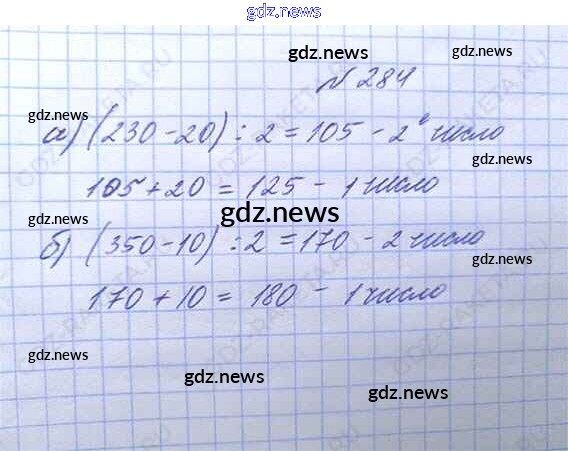 gdz.news
gdz.news gdz.news
№ 284
gdz.news
а) (230-20) : 2 = 105 - 2е число
gdz.news
105+20 = 125 - 1 число
gdz.news
б) (350-10) : 2 = 170 - 2 число
gdz.news
170+10 = 180 - 1 число
gdz.news
gdz.news
gdz.news